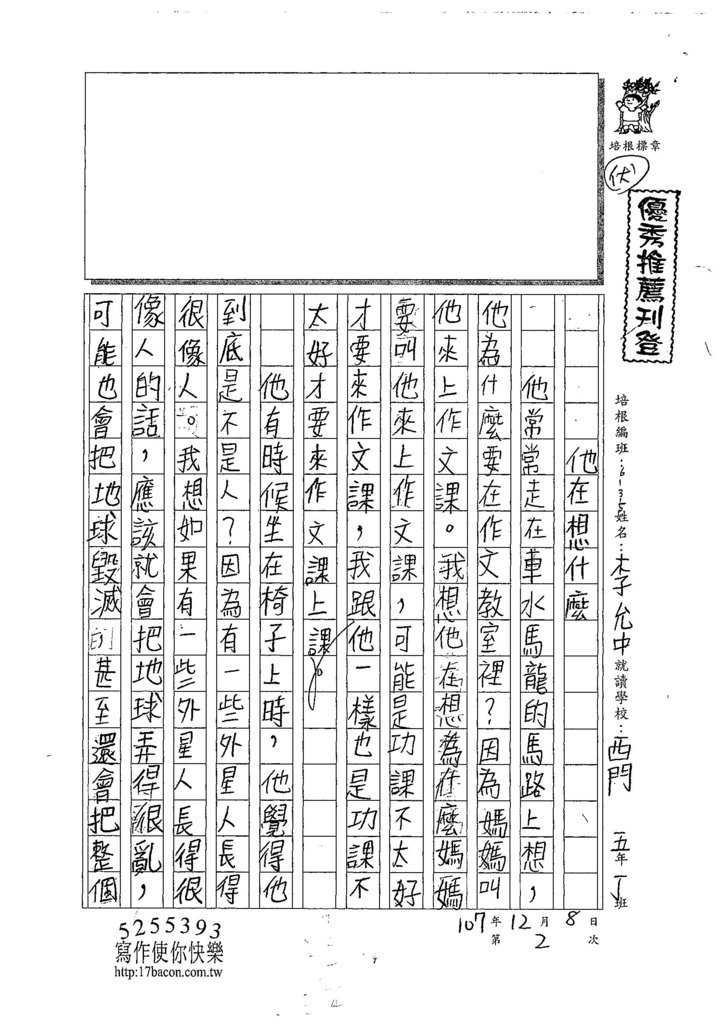 培根標章
優秀推薦刊登
培根編班：613 姓名：李允中 就讀學校：西門 五年丁班
他在想什麼
他常常走在車水馬龍的馬路上想，
他為什麼要在作文教室裡？因為媽媽叫
他來上作文課。我想他在想為什麼媽媽
要叫他來上作文課，可能是功課不太好
才要來作文課，我跟他一樣也是功課不
太好才要來作文課上課。
他有時候坐在椅子上時，他覺得他
到底是不是人？因為有一些外星人長得
很像人。我想如果有一些外星人長得很
像人的話，應該就會把地球弄得很亂，
可能也會把地球毀滅甚至還會把整個
107年12月8日
第2次
5255393
寫作使你快樂
http:17bacon.com.tw